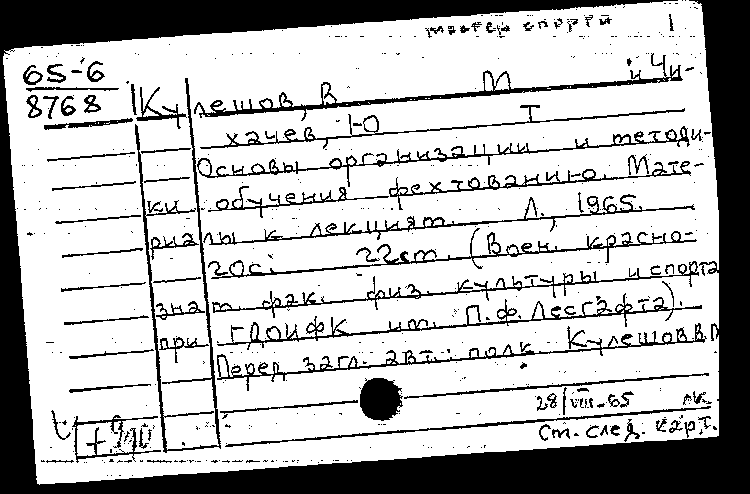 мастер спорта 1
65-6
8768
Кулешов, В М и Чи-
хачев, Ю Т
Основы организации и методи-
ки обучения фехтованию. Мате-
риалы к лекциям. Л., 1965.
20с. 22см. (Воен. красно-
знам. фак. физ. культуры и спорта
при ГДОИФК им. П.Ф. Лесгафта).
Перед загл. авт.: полк. Кулешов В.М
28/VIII-65 лк.
См. след. карт.